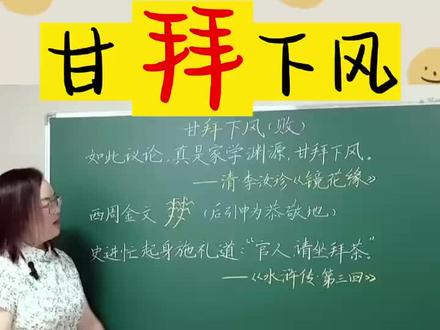 甘拜下风
甘拜下风(败)
如此议论,真是家学渊源,甘拜下风。
——清·李汝珍《镜花缘》
西周金文 (后引申为恭敬地)
史进忙起身施礼道:“官人,请坐拜茶。”
——《水浒传·第三回》